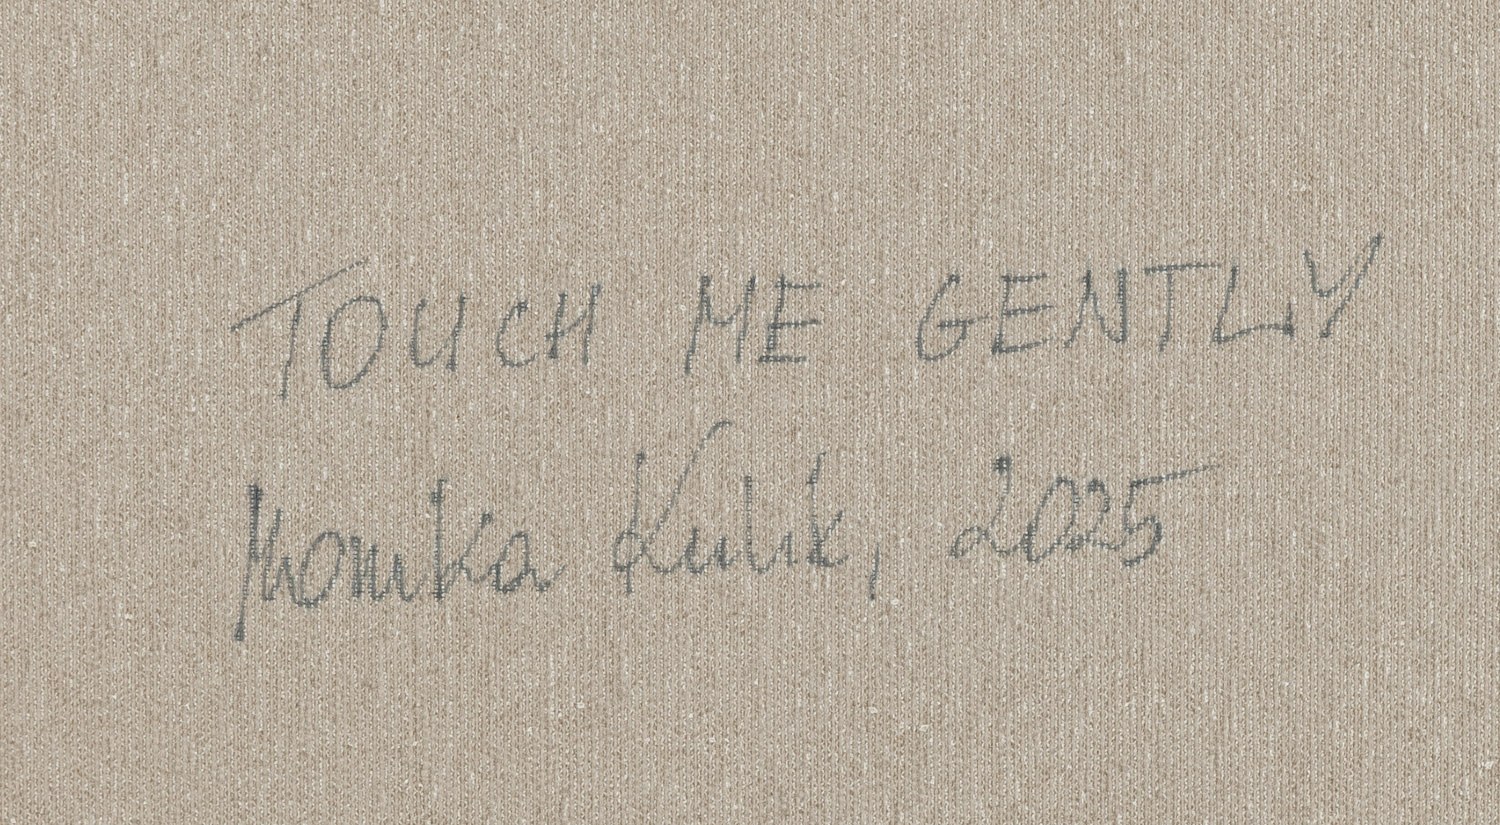 TOUCH ME GENTLY
Monika Kulik, 2025